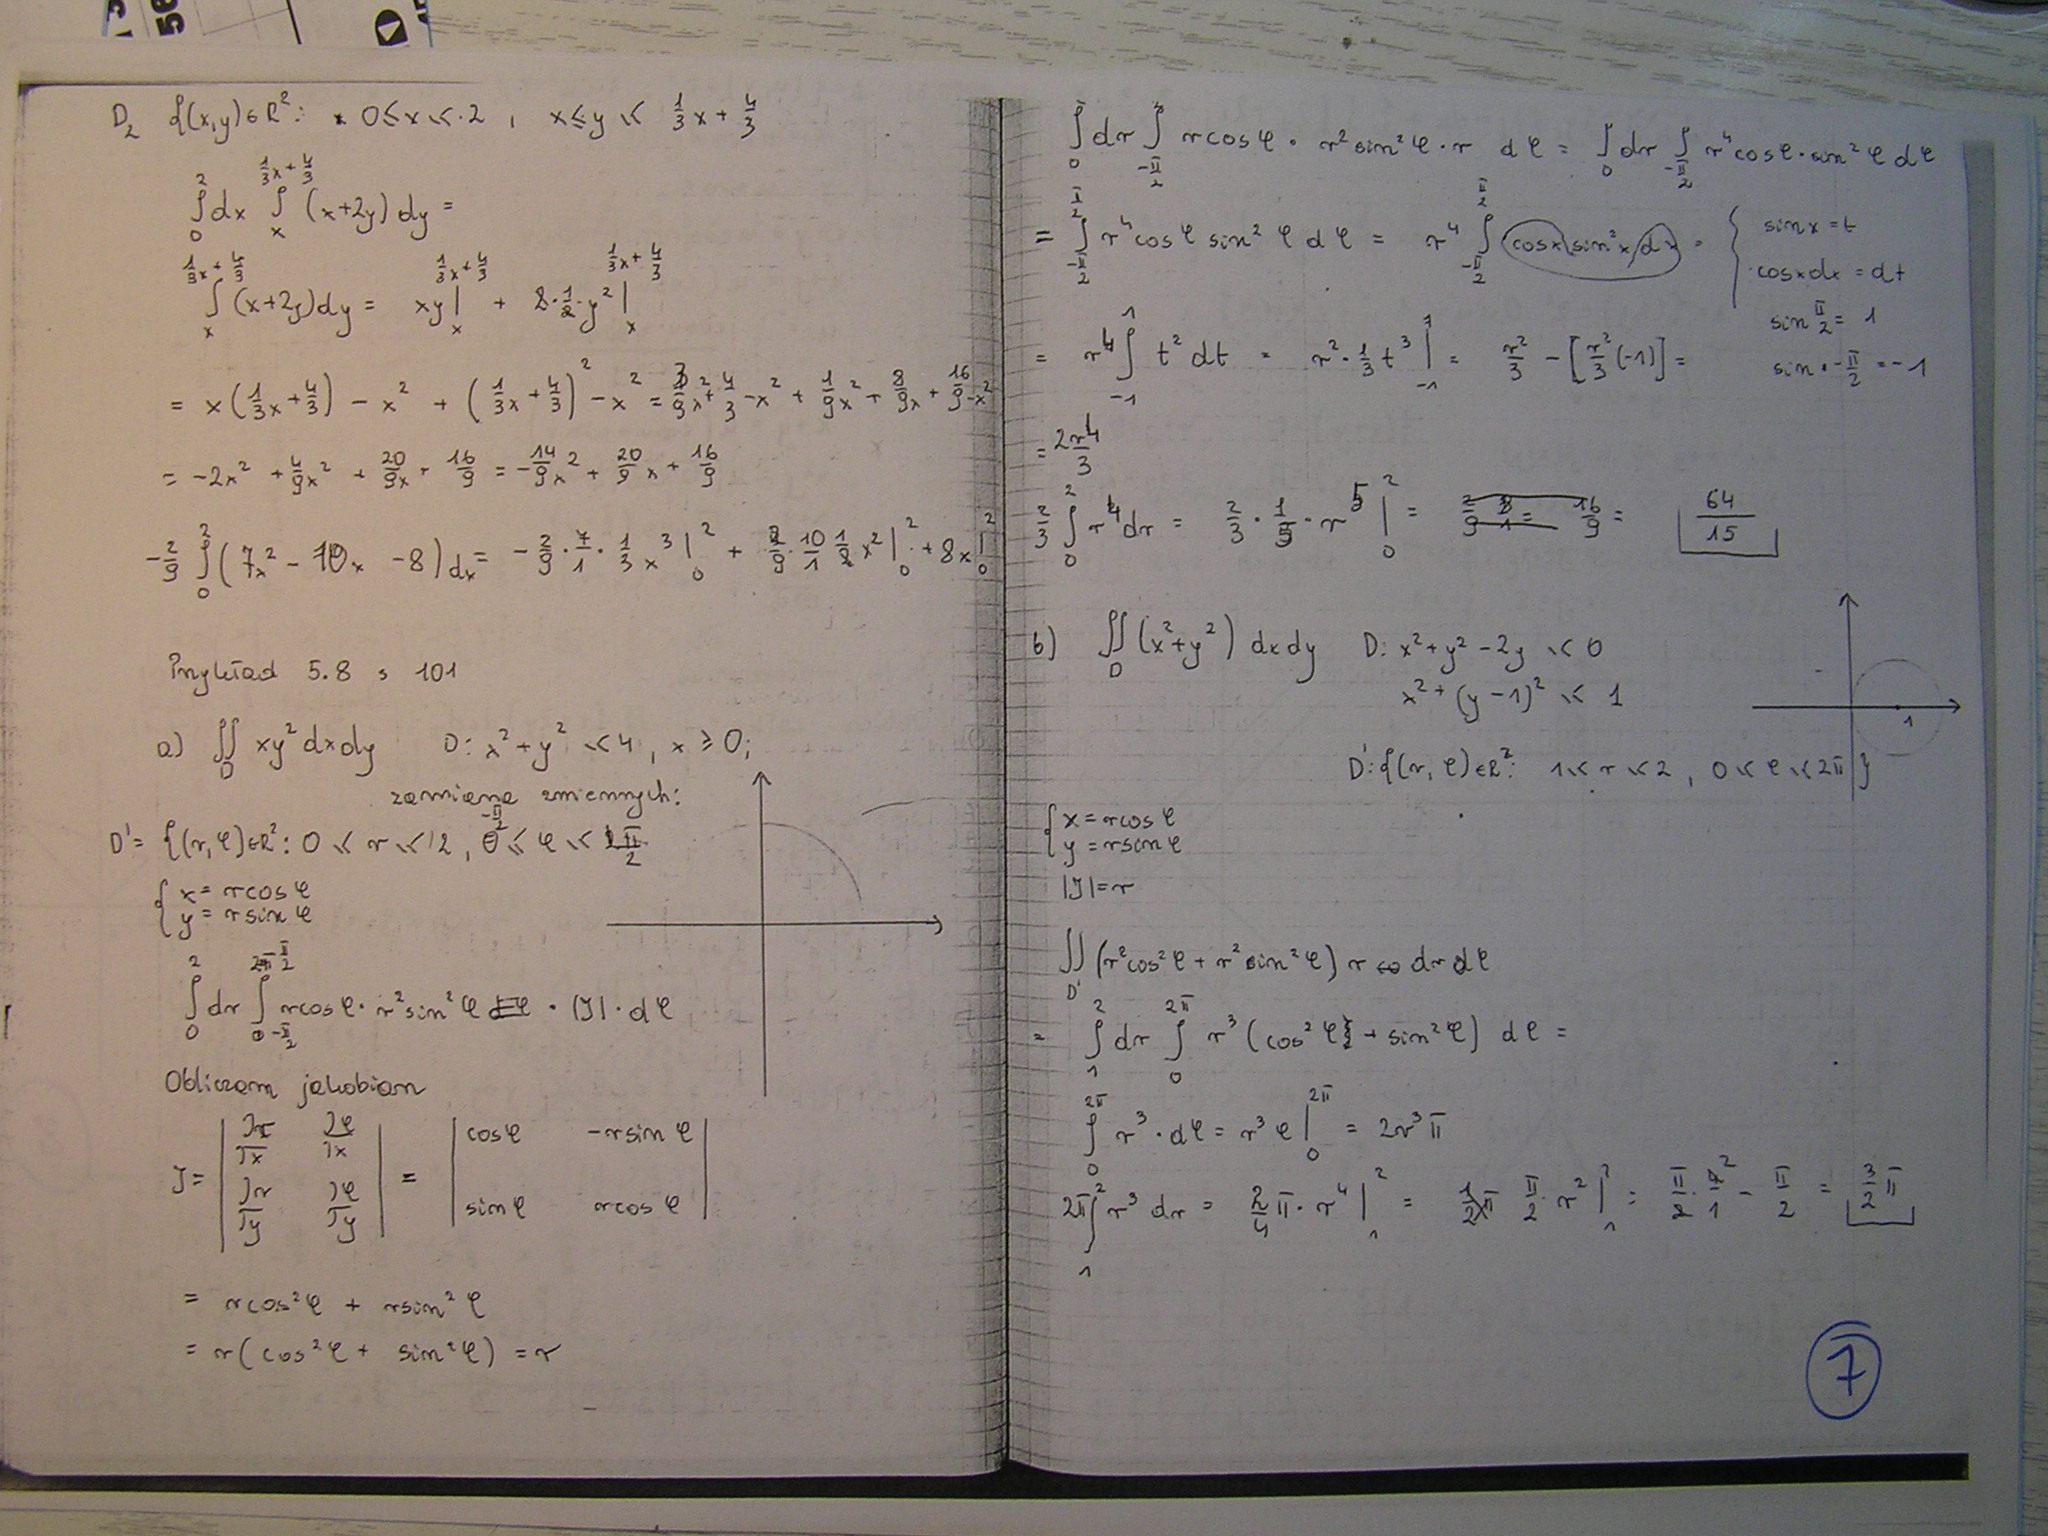 D₂ {(x,y)∈R²: 0≤x≤2, x≤y≤ 1/3x + 4/3
∫₀² dx ∫ₓ^(1/3x+4/3) (x+2y) dy =
∫ₓ^(1/3x+4/3) (x+2y)dy = xy|ₓ^(1/3x+4/3) + 2·1/2·y²|ₓ^(1/3x+4/3)
= x(1/3x+4/3) - x² + (1/3x+4/3)² - x² = 3/9x²+4/3-x²+1/9x²+8/9x+16/9-x²
= -2x² + 4/9x² + 20/9x + 16/9 = -14/9x² + 20/9x + 16/9
-2/9 ∫₀² (7x² - 10x - 8)dx = -2/9·7/1·1/3x³|₀² + 2/9·10/1 1/2x²|₀² + 8x|₀²
Przykład 5.8 s 101
a) ∬_D xy²dxdy D: x²+y² ≤4, x ≥ 0;
zamiana zmiennych:
D' = {(r,φ)∈R²: 0 ≤ r ≤ 2, -π/2 ≤ φ ≤ π/2
{ x = rcosφ
y = rsinφ
∫₀² dr ∫_(-π/2)^(π/2) rcosφ·r²sin²φ · |J|·dφ
Obliczam jakobian
J = | ∂r/∂x ∂φ/∂x | = | cosφ -rsinφ |
| ∂r/∂y ∂φ/∂y | | sinφ rcosφ |
= rcos²φ + rsin²φ
= r(cos²φ + sin²φ) = r
∫₀ dr ∫_(-π/2) rcosφ·r²sin²φ·r dφ = ∫₀ dr ∫_(-π/2) r⁴cosφ·sin²φdφ
= ∫_(-π/2)^(π/2) r⁴cosφ sin²φ dφ = r⁴ ∫_(-π/2)^(π/2) cosx sin²x dx = { sinx = t
cosxdx = dt
sin π/2 = 1
sin·-π/2 = -1
= r⁴ ∫₋₁¹ t² dt = r²·1/3t³|₋₁¹ = r²/3 - [r²/3(-1)] =
= 2r⁴/3
2/3 ∫₀² r⁴dr = 2/3·1/5·r⁵|₀² = 64/15
b) ∬_D (x²+y²) dxdy D: x²+y²-2y ≤ 0
x²+(y-1)² ≤ 1
1
D': {(r,φ)∈R²: 1≤r≤2, 0≤φ≤2π}
{ x = rcosφ
y = rsinφ
|J| = r
∬_D' (r²cos²φ + r²sin²φ) r drdφ
= ∫₁² dr ∫₀^(2π) r³(cos²φ + sin²φ) dφ =
∫₀^(2π) r³·dφ = r³φ|₀^(2π) = 2r³π
2π∫₁² r³ dr = 2/4π·r⁴|₁² = π/2·r²|₁² = π/2·4/1 - π/2 = 3/2π
7